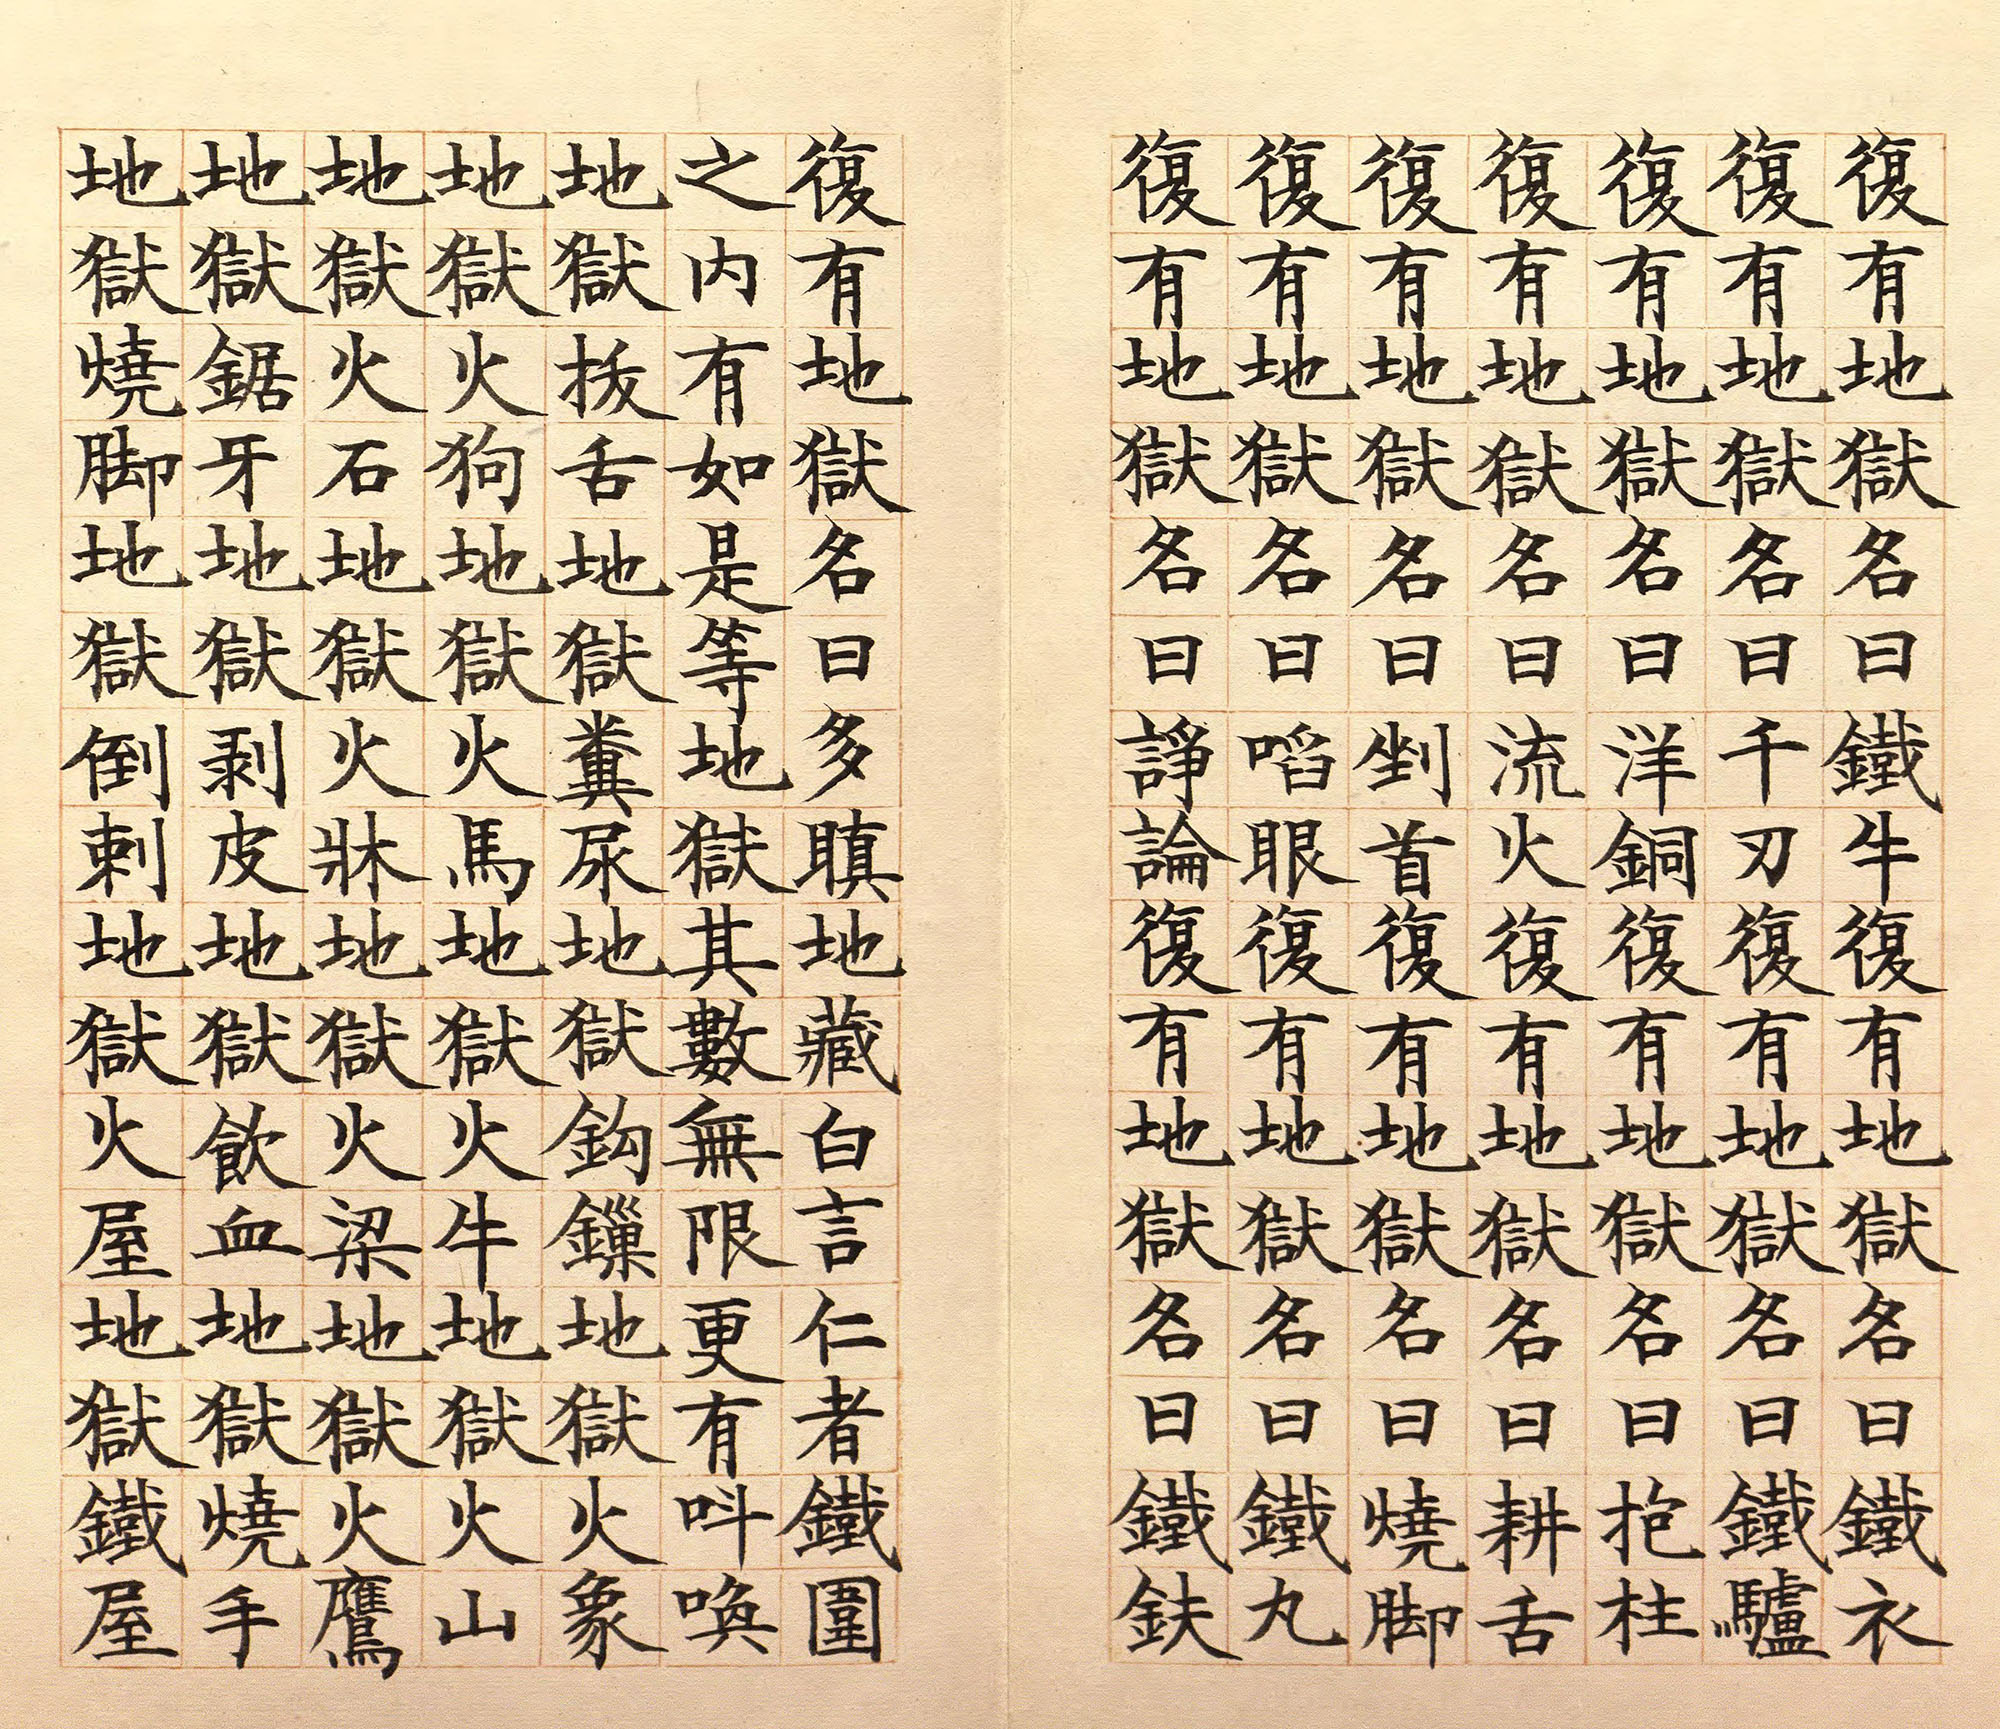 復有地獄名曰鐵牛復有地獄名曰鐵衣
復有地獄名曰千刃復有地獄名曰鐵驢
復有地獄名曰洋銅復有地獄名曰抱柱
復有地獄名曰流火復有地獄名曰耕舌
復有地獄名曰剉首復有地獄名曰燒脚
復有地獄名曰啗眼復有地獄名曰鐵丸
復有地獄名曰諍論復有地獄名曰鐵鈇
復有地獄名曰多瞋地藏白言仁者鐵圍
之内有如是等地獄其數無限更有呌喚
地獄拔舌地獄糞尿地獄鈎鏁地獄火象
地獄火狗地獄火馬地獄火牛地獄火山
地獄火石地獄火牀地獄火梁地獄火鷹
地獄鋸牙地獄剥皮地獄飲血地獄燒手
地獄燒脚地獄倒刺地獄火屋地獄鐵屋